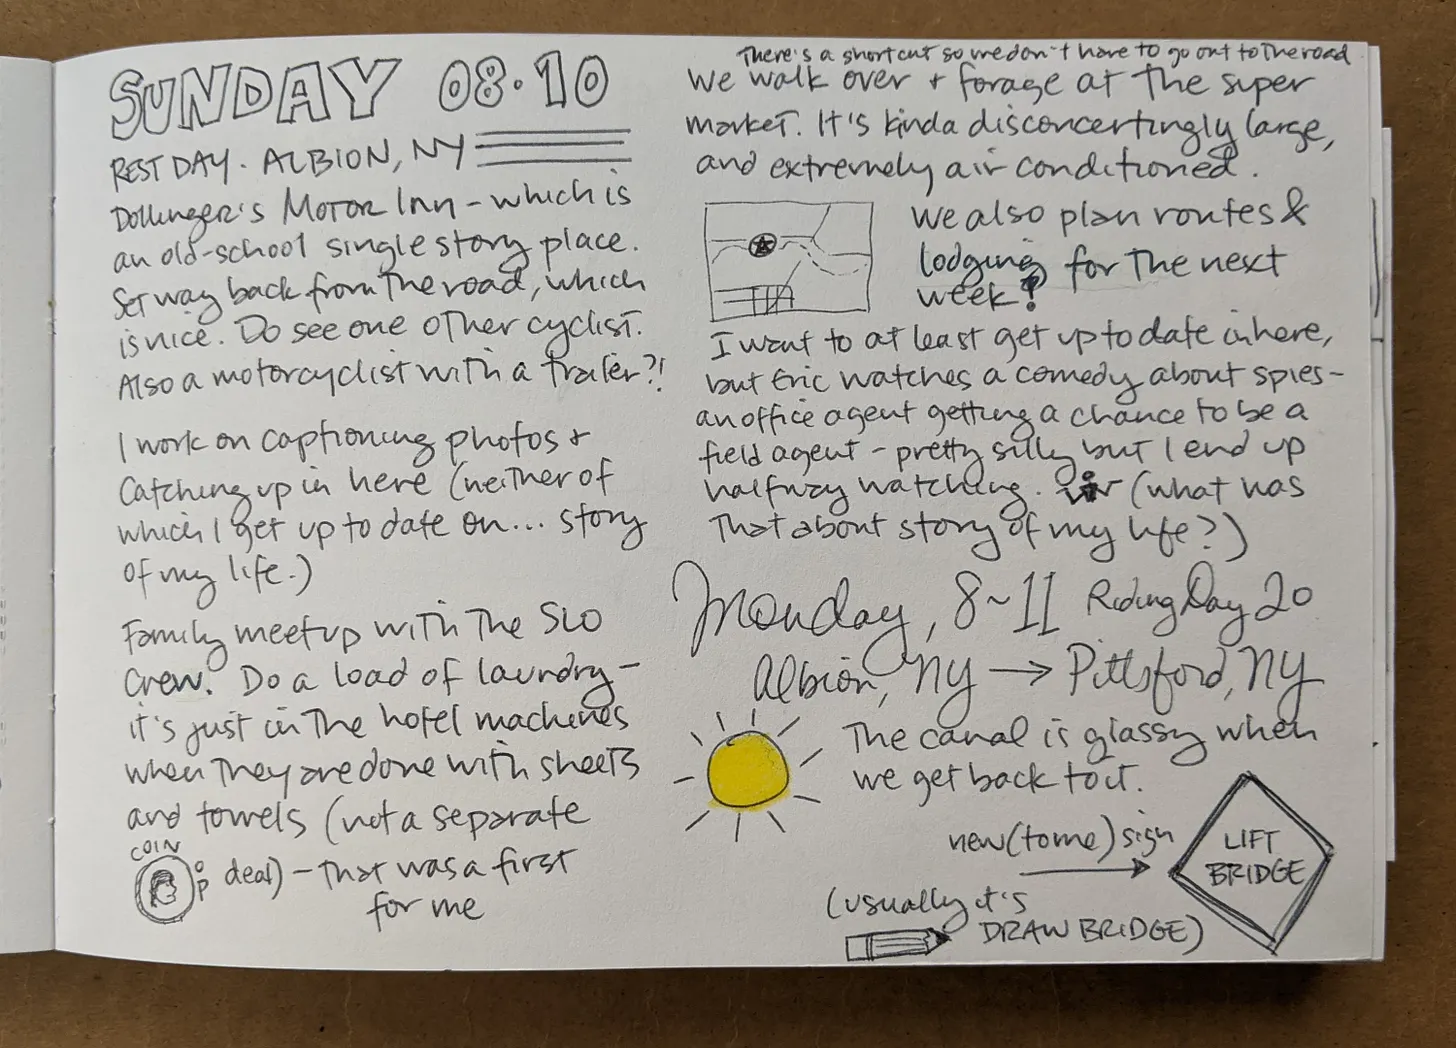 SUNDAY 08.10
REST DAY. ALBION, NY
Dollinger's Motor Inn - which is
an old-school single story place.
Set way back from the road, which
is nice. Do see one other cyclist.
Also a motorcyclist with a trailer?!
I work on captioning photos +
catching up in here (neither of
which I get up to date on... story
of my life.)
Family meetup with the SLO
crew. Do a load of laundry -
it's just in the hotel machines
when they are done with sheets
and towels (not a separate
COIN
OP
deal) - that was a first
for me
There's a shortcut so we don't have to go out to the road
We walk over + forage at the super
market. It's kinda disconcertingly large,
and extremely air conditioned.
We also plan routes &
lodging for the next
week!
I want to at least get up to date in here,
but Eric watches a comedy about spies -
an office agent getting a chance to be a
field agent - pretty silly but I end up
halfway watching. (what was
that about story of my life?)
Monday, 8~11 Riding Day 20
Albion, NY → Pittsford, NY
The canal is glassy when
we get back to it.
new (to me) sign
LIFT
BRIDGE
(usually it's
DRAW BRIDGE)